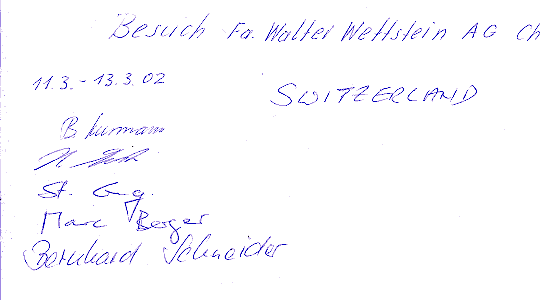 Besuch Fa. Walter Wettstein AG CH
11.3. - 13.3.02
SWITZERLAND
B Kurmann
St.
Marc Berger
Bernhard Schneider